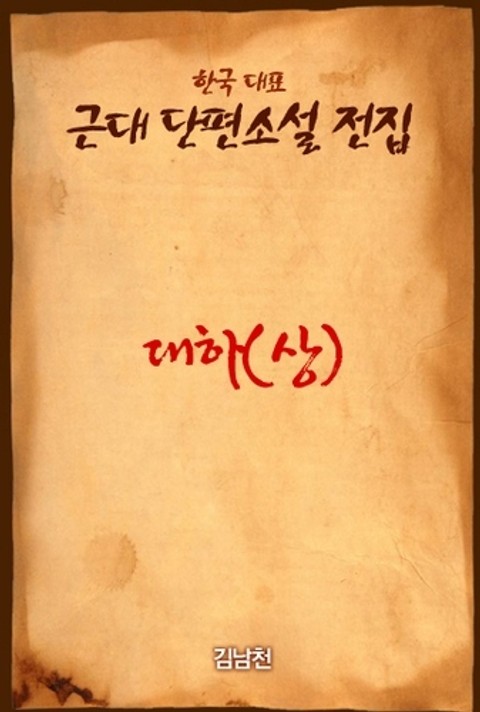 한국 대표
근대 단편소설 전집
대하(상)
김남천